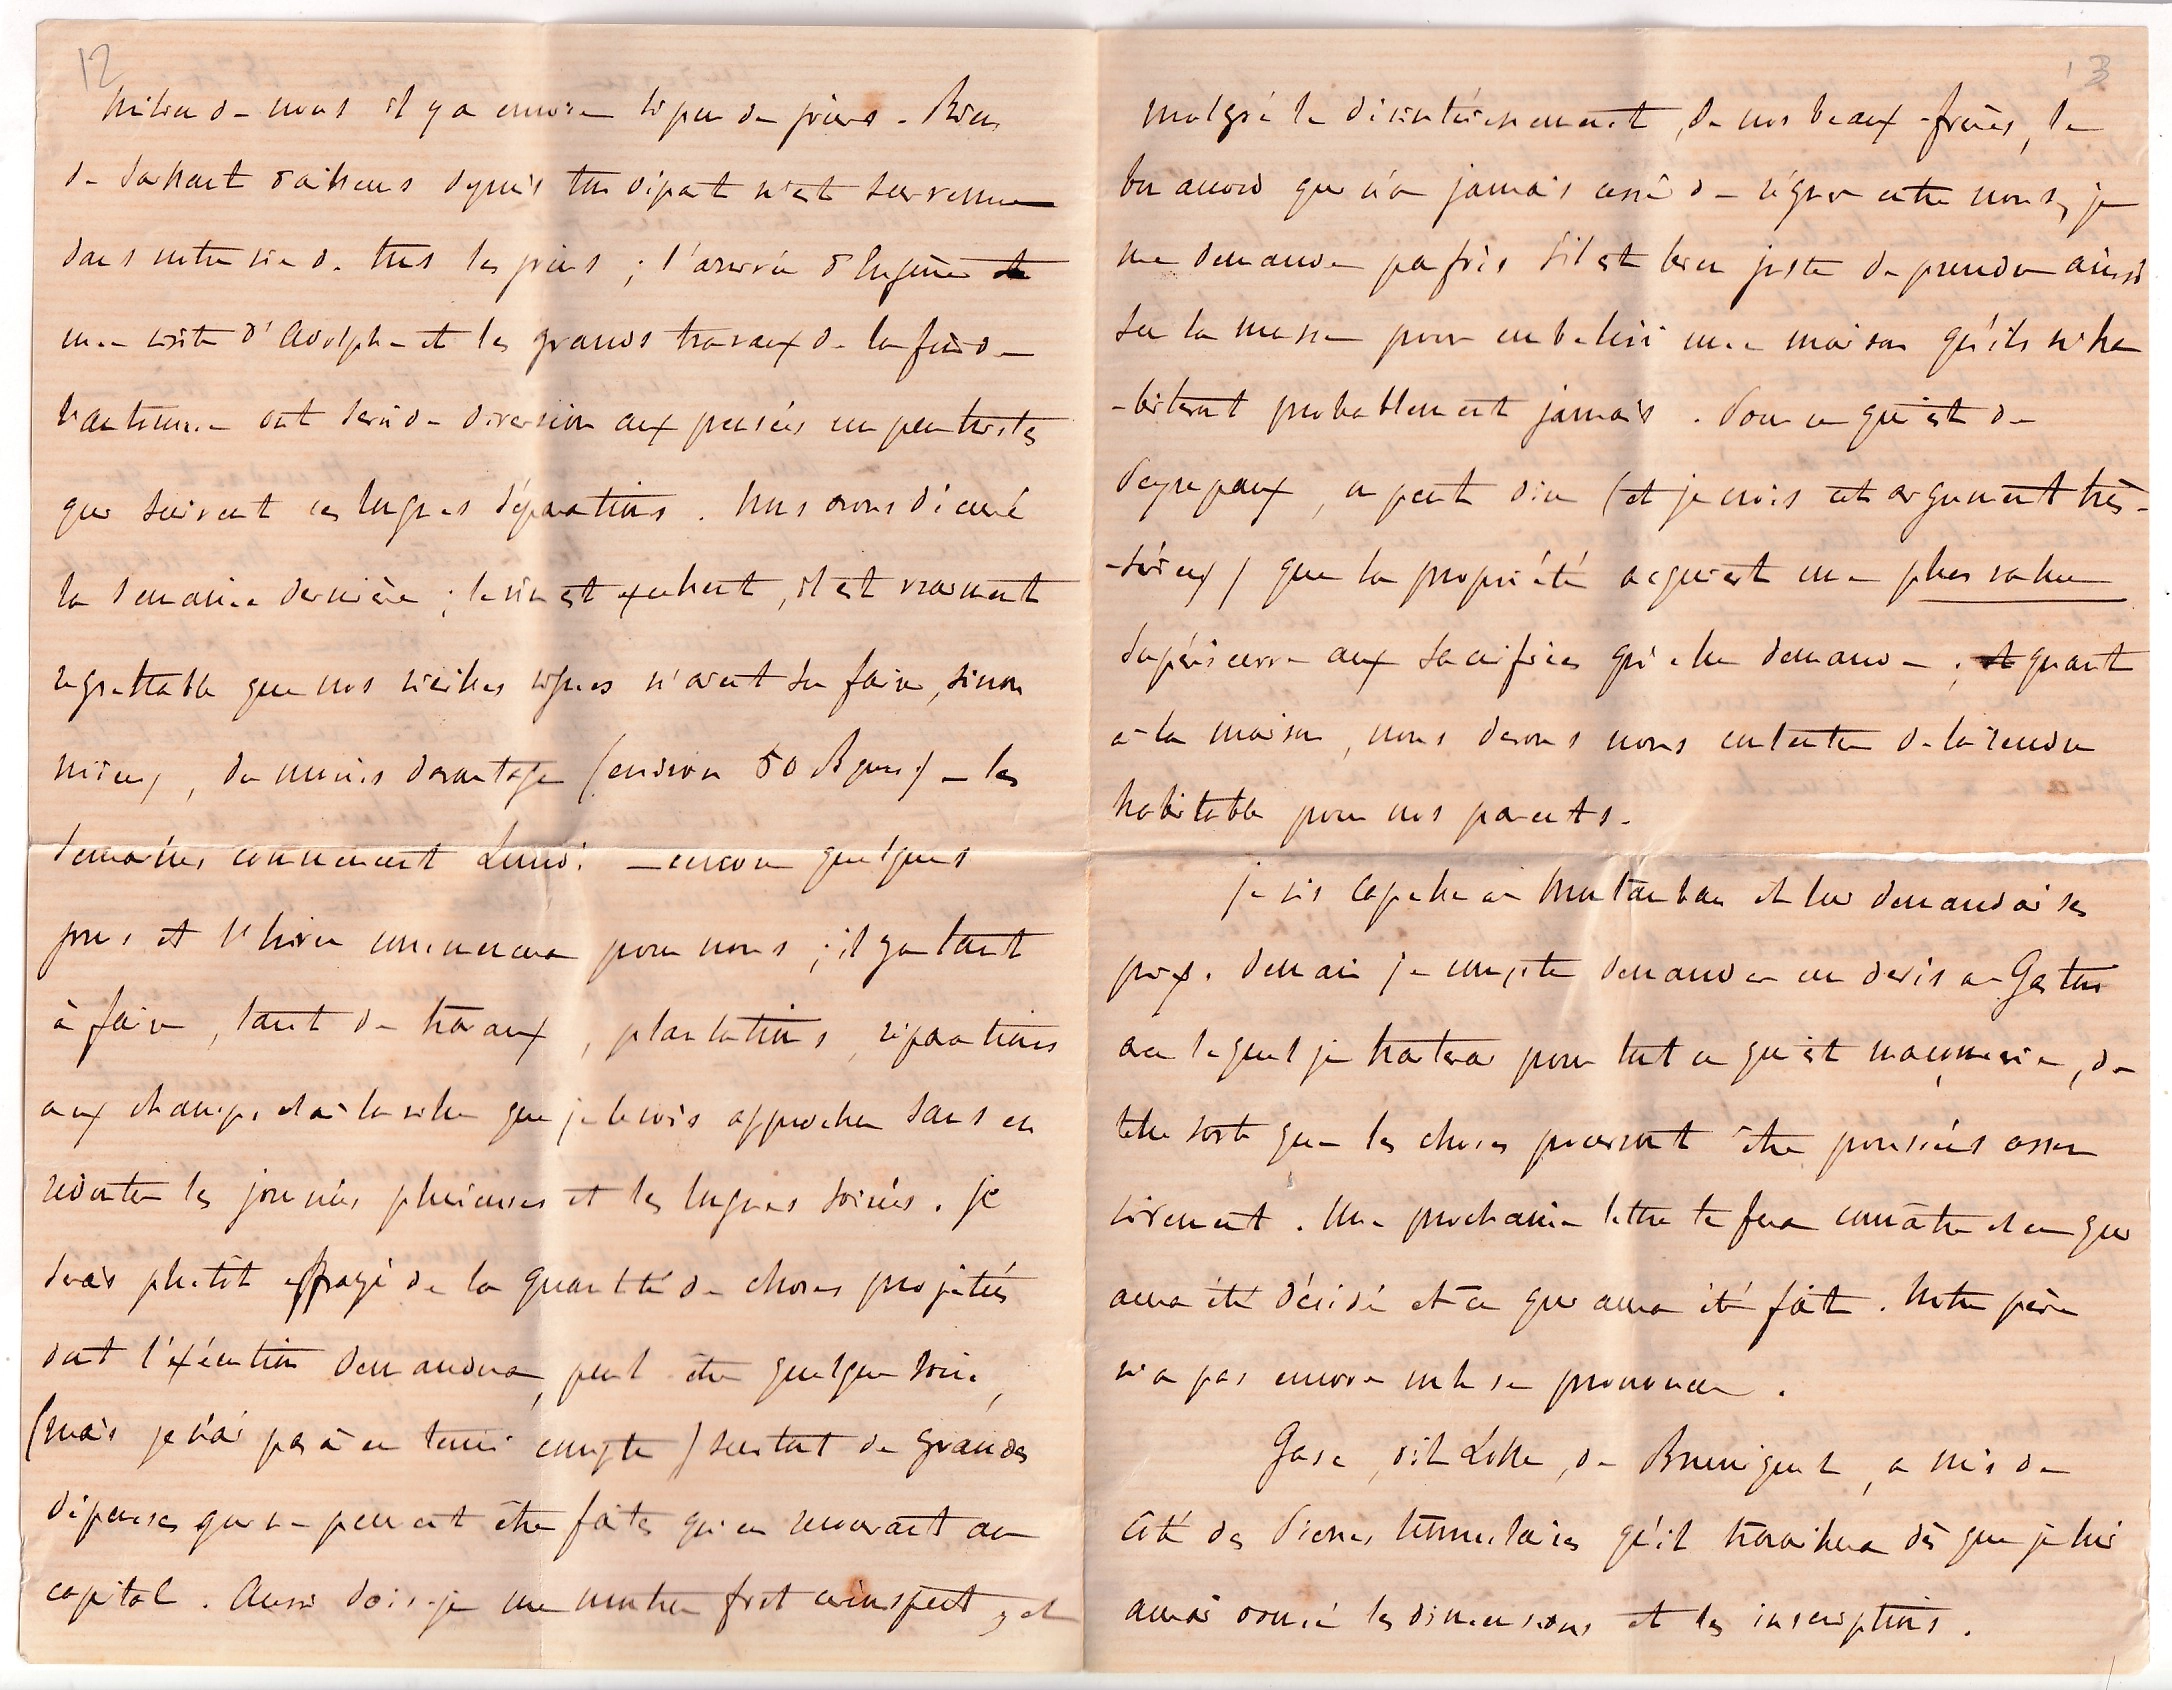 12
milieu de nous il y a encore si peu de jours. Rien
de saillant d'ailleurs depuis ton départ n'est survenu
dans notre vie de tous les jours ; l'arrivée d'Eugène
une visite d'Adolphe et les grands travaux de la fin de
l'automne ont servi de diversion aux pensées un peu tristes
qui suivent ces longues séparations. Nous avons décuvé
la semaine dernière ; le vin est excellent, il est vraiment
regrettable que nos vieilles vignes n'aient su faire, sinon
mieux, du moins davantage (environ 50 Bques) – les
semailles commencent Lundi – encore quelques
jours et l'hiver commencera pour nous ; il y a tant
à faire, tant de travaux, plantations, réparations
aux champs et à la ville que je le vois approcher sans en
redouter les journées pluvieuses et les longues soirées. Je
serais plutôt effrayé de la quantité de choses projetées
dont l'exécution demandera, peut-être quelque soin,
(mais je n'ai pas à en tenir compte) surtout de grandes
dépenses qui ne peuvent être faites qu'en recourant au
capital. Aussi dois-je me montrer fort circonspect, et
13
malgré le désintéressement, de nos beaux-frères, le
bon accord qui n'a jamais cessé de régner entre nous, je
me demande parfois s'il est bien juste de prendre ainsi
sur la masse pour embellir une maison qu'ils n'ha
-biteront probablement jamais. Pour ce qui est de
, on peut dire (et je crois cet argument très-
-sérieux) que la propriété acquiert une plus value
supérieure aux sacrifices qu'elle demande ; quant
à la maison, nous devons nous contenter de la rendre
habitable pour nos parents.
Je vis Capelle à Montauban et lui demandai ses
prix. Demain je compte demander un devis à Gaston
avec lequel je traiterai pour tout ce qui est maçonnerie, de
telle sorte que les choses pourront être poussées assez
vivement. Une prochaine lettre te fera connaître et ce qui
aura été décidé et ce qui aura été fait. Notre père
n'a pas encore voulu se prononcer.
, dit , de Bruniquel, a mis de
côté des pierres tumulaires qu'il travaillera dès que je lui
aurai donné les dimensions et les inscriptions.